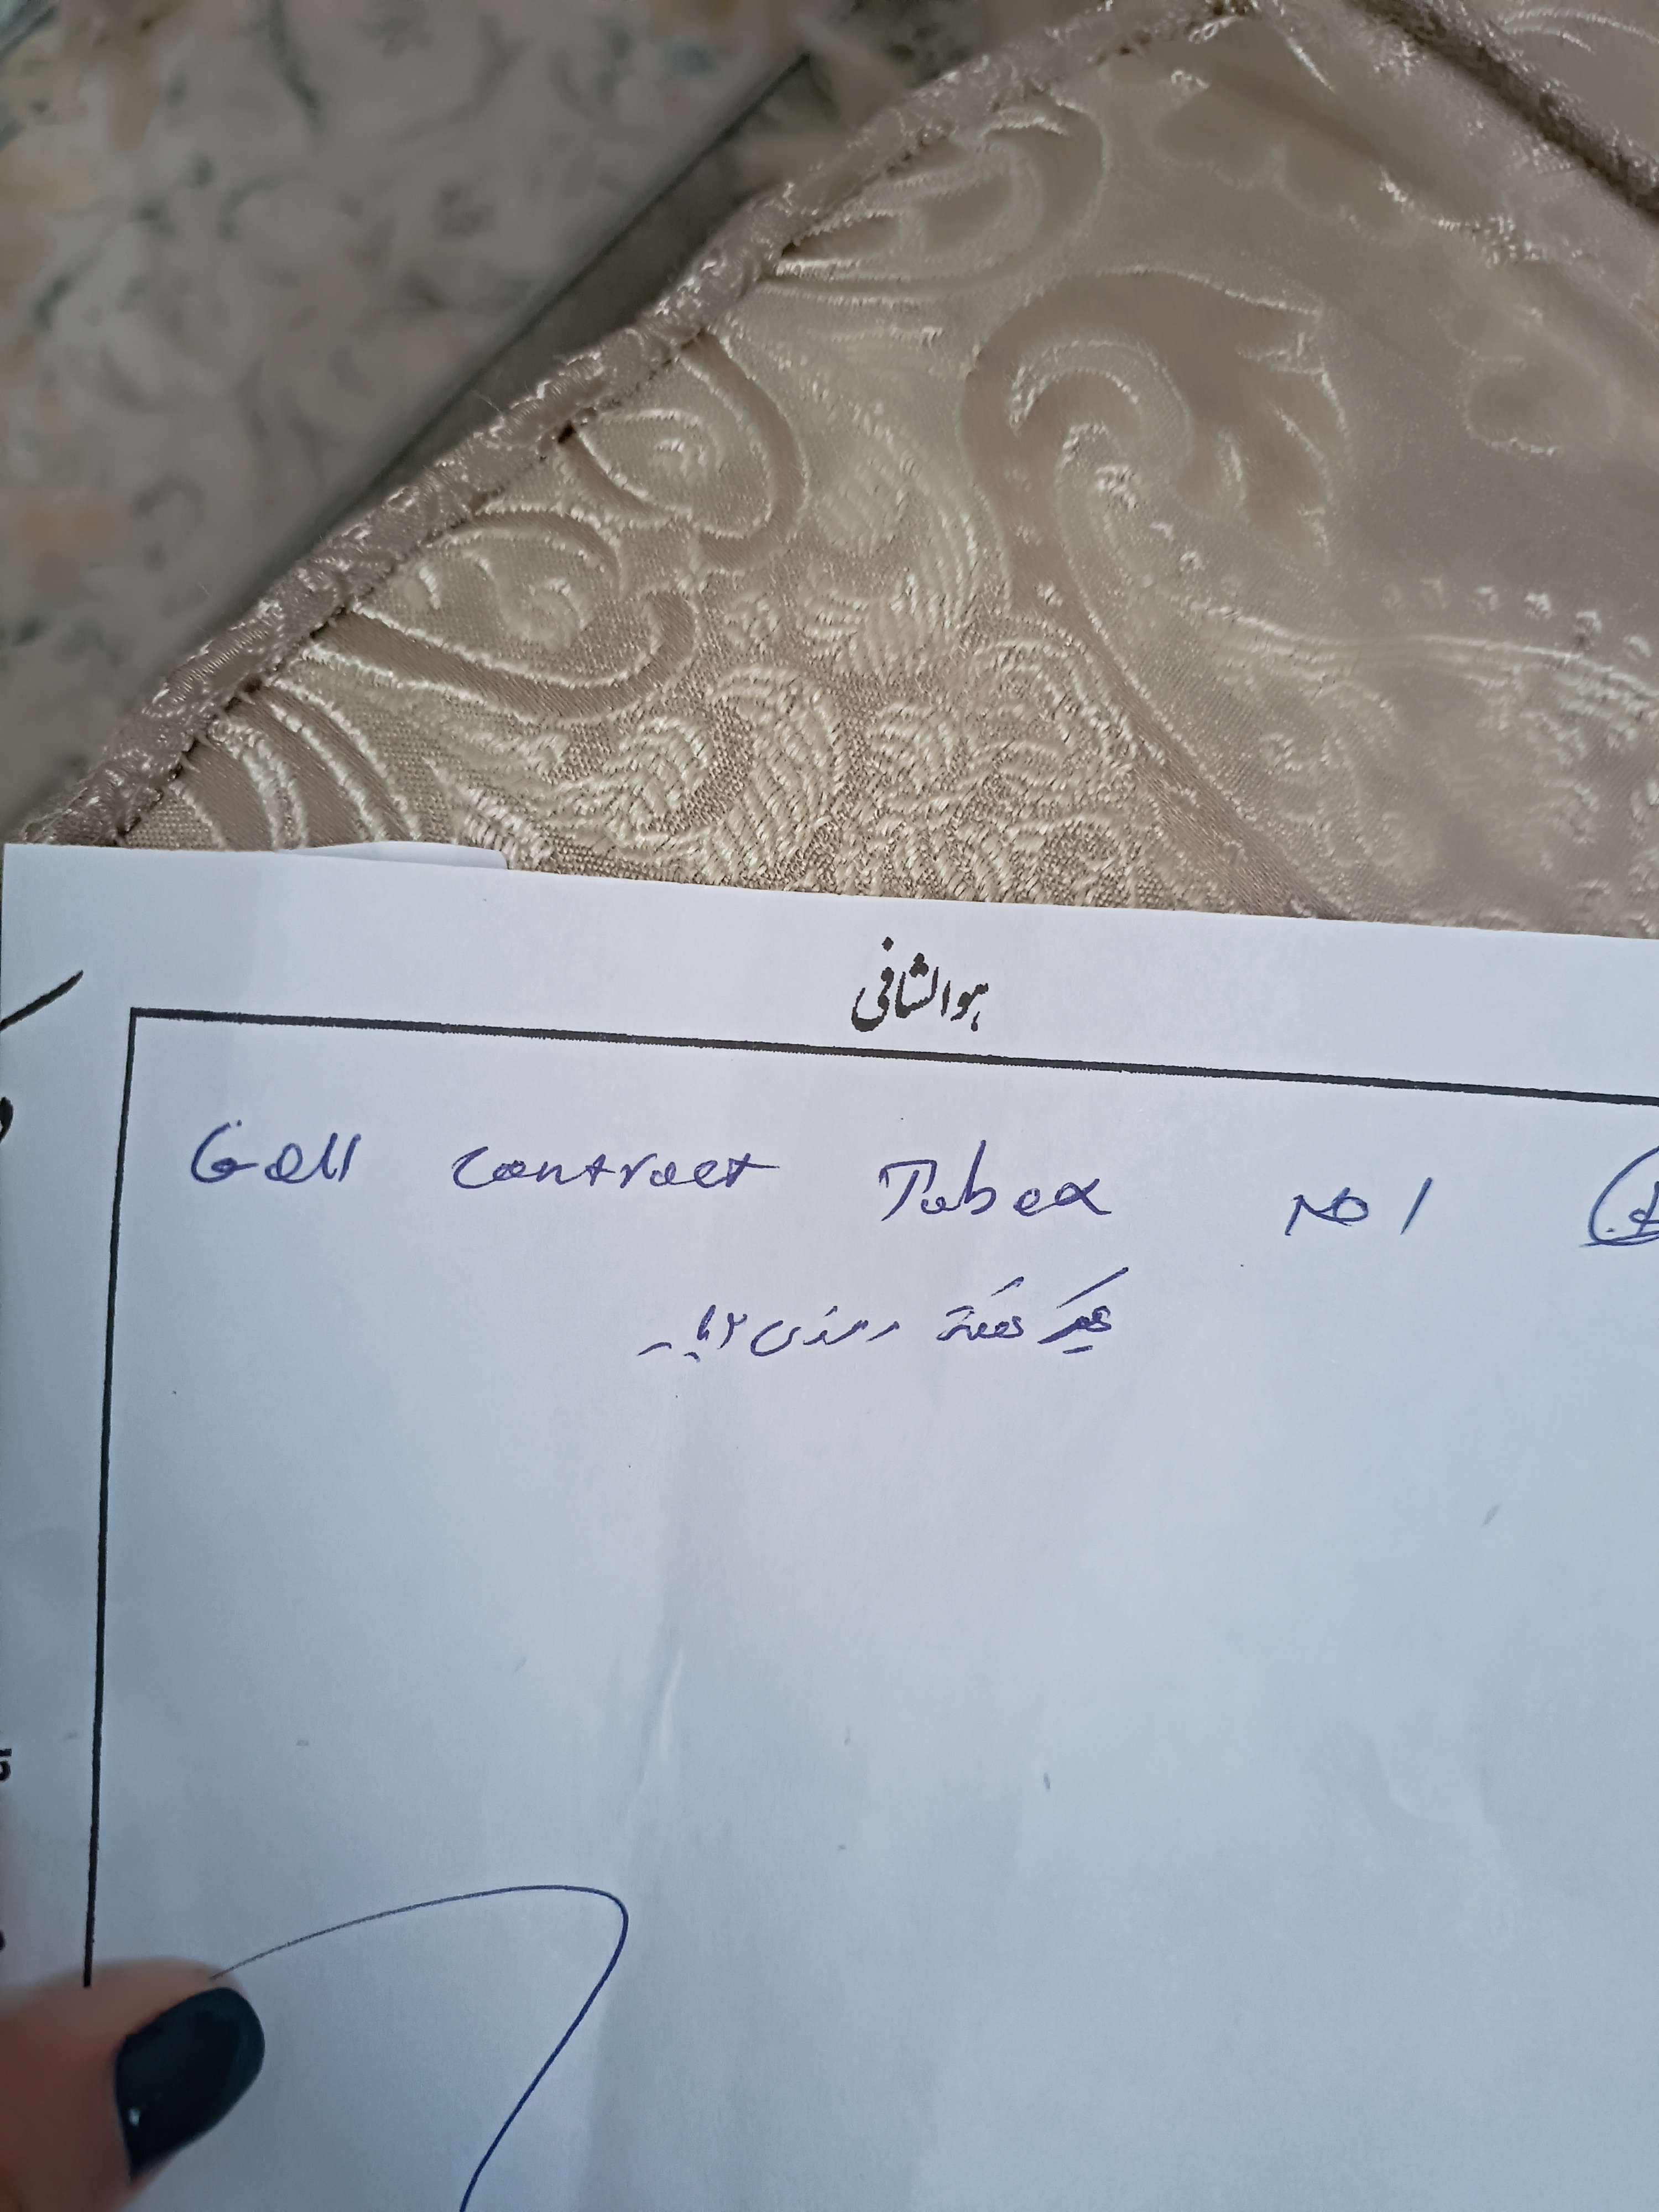 هوالشافی
Gall contract Tubex No 1
یک هفته روزی ۲ بار